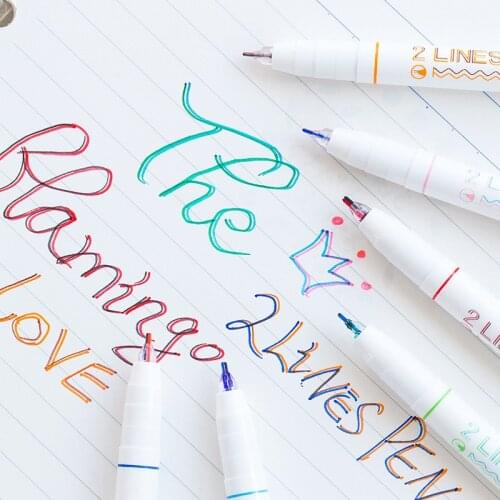 The
Flamingo
LOVE
2 LiNES PEN
2 LINES
2 L
2 LIN
2 LI